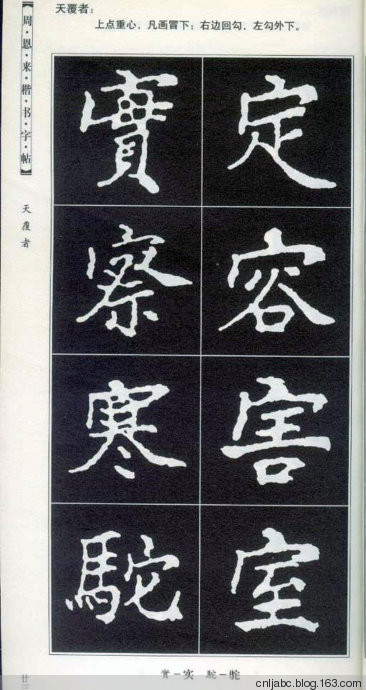 天覆者：
上点重心，凡画冒下；右边回勾，左勾外下。
【周·恩·来·楷·书·字·帖】
天覆者
定容害室
實察寒駝
實－实 駝－驼
cnljabc.blog.163.com